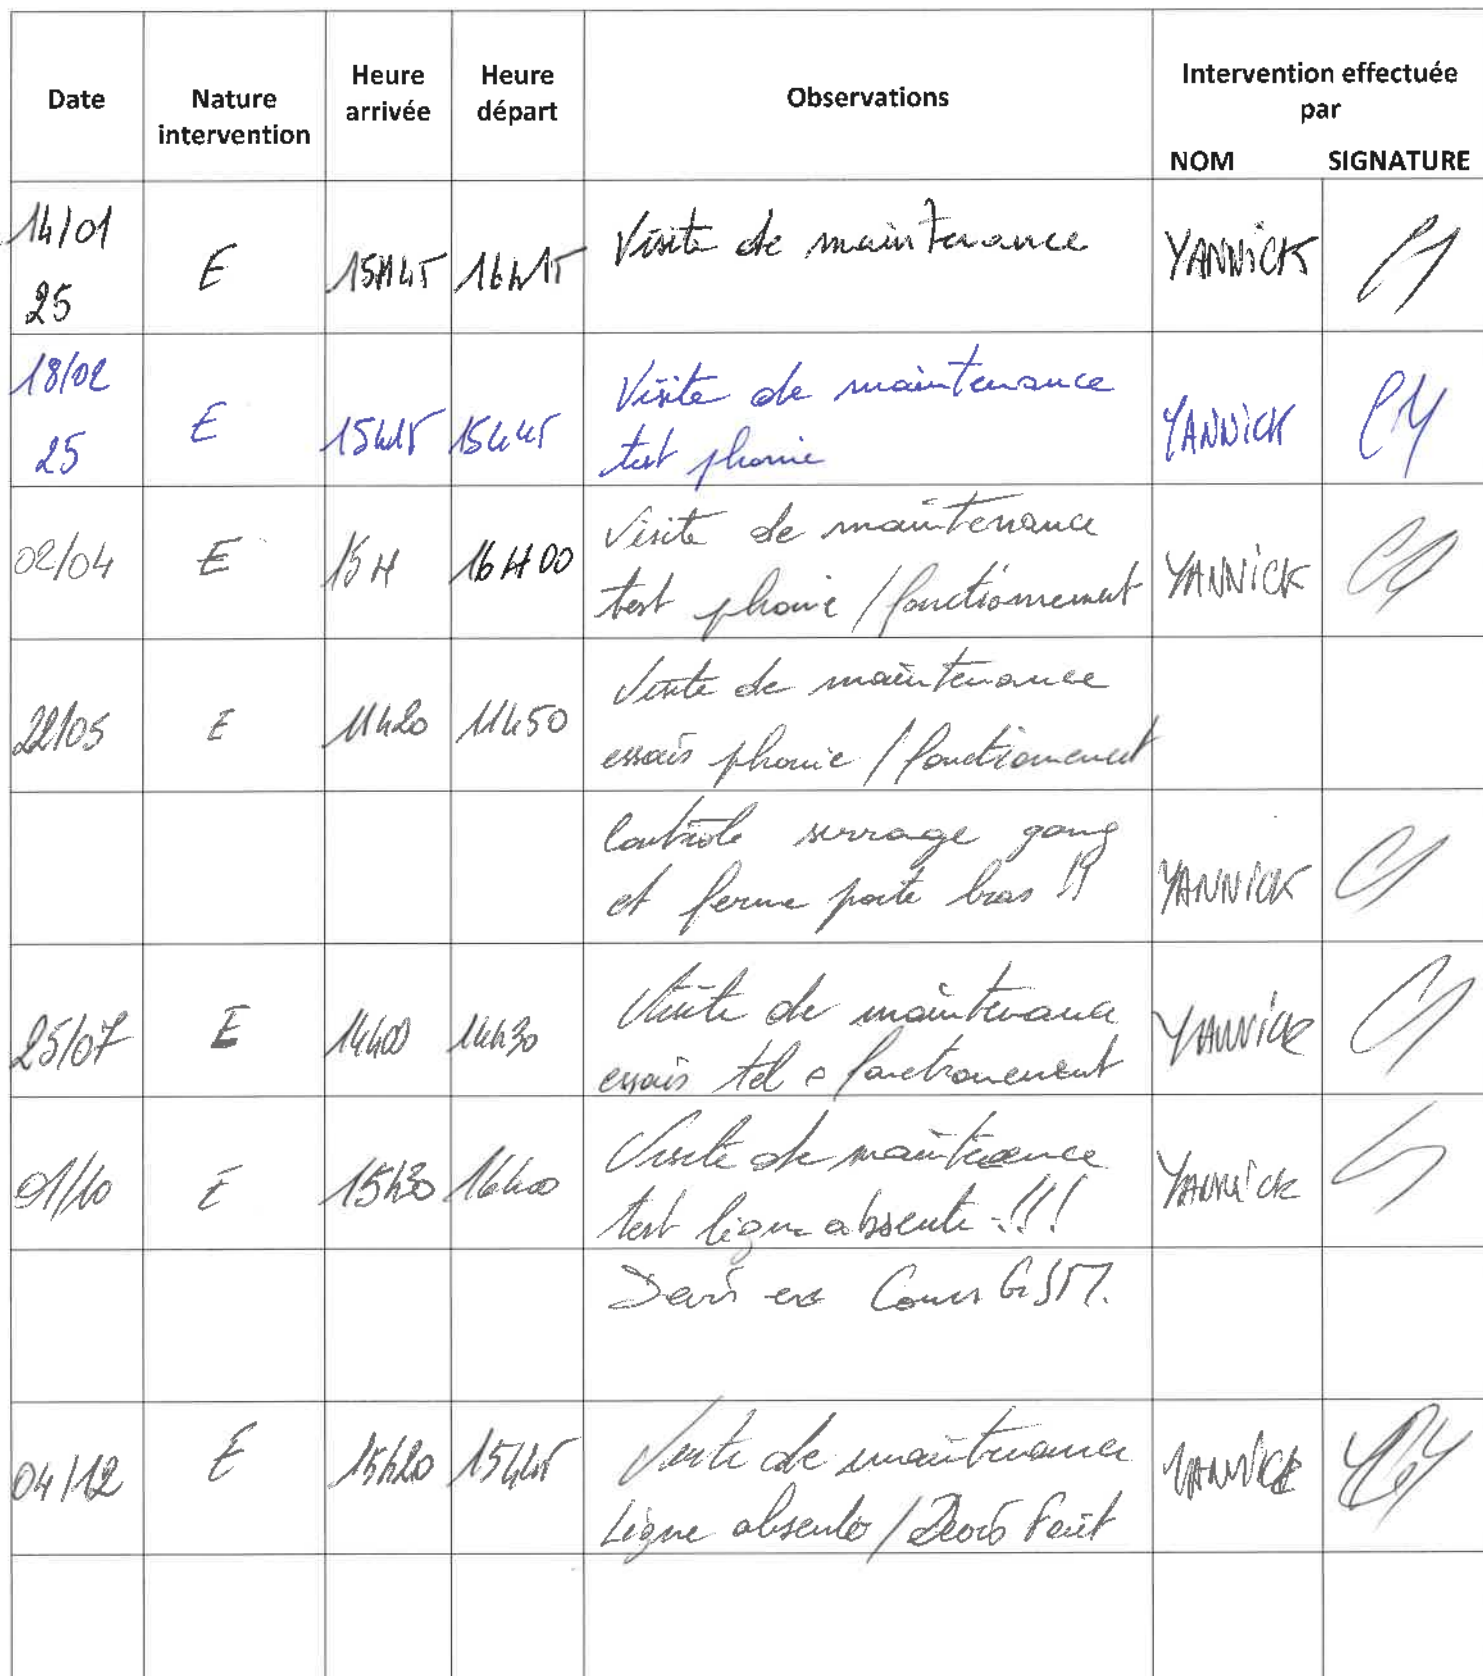 Date Nature intervention Heure arrivée Heure départ Observations Intervention effectuée par
NOM SIGNATURE
14/01
25 E 15H45 16h15 Visite de maintenance YANNICK
18/02
25 E 15h15 15h45 Visite de maintenance
test phonie YANNICK
02/04 E 15H 16H00 Visite de maintenance
test phonie / fonctionnement YANNICK
22/05 E 11h20 11h50 Visite de maintenance
essais phonie / fonctionnement
Contrôle serrage gong
et ferme porte bras !! YANNICK
25/07 E 14h00 14h30 Visite de maintenance
essais tel fonctionnement YANNICK
01/10 E 15h30 16h00 Visite de maintenance
test ligne absente !!!
YANNICK
Devis en Cours GSM.
04/12 E 15h20 15h45 Visite de maintenance
Ligne absente / Devis Fait YANNICK